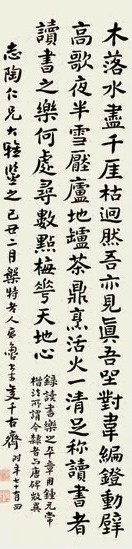 木落水盡千厓枯迥然吾亦見真吾坐對韋編鐙動壁
高歌夜半雪壓廬地罏茶鼎烹活火一清足稱讀書者
讀書之樂何處尋數點梅花天地心
錄讀書樂之卒章用鍾元常
楷法所謂今隸者与唐碑故異
志陶仁兄大雅鑒之己丑二月槃特老人
千古齋時年七十有四